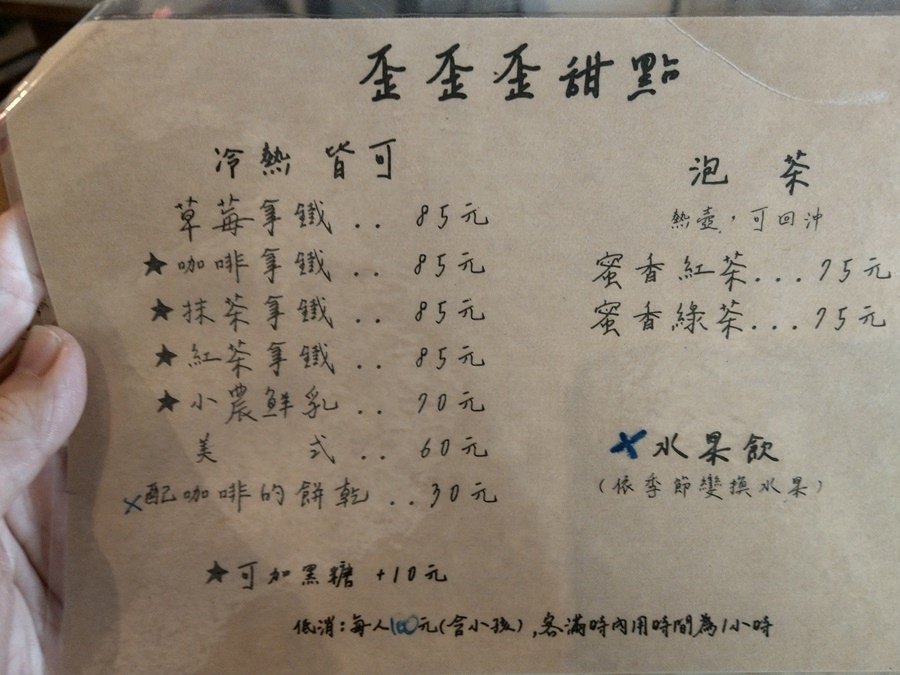 歪歪歪甜點
冷熱皆可
草莓拿鐵 .. 85元
★咖啡拿鐵 .. 85元
★抹茶拿鐵 .. 85元
★紅茶拿鐵 .. 85元
★小農鮮乳 .. 70元
美式 .. 60元
×配咖啡的餅乾 .. 30元
★可加黑糖 +10元
泡茶
熱壺，可回沖
蜜香紅茶...75元
蜜香綠茶...75元
×水果飲
(依季節變換水果)
低消：每人100元(含小孩)，客滿時內用時間為1小時